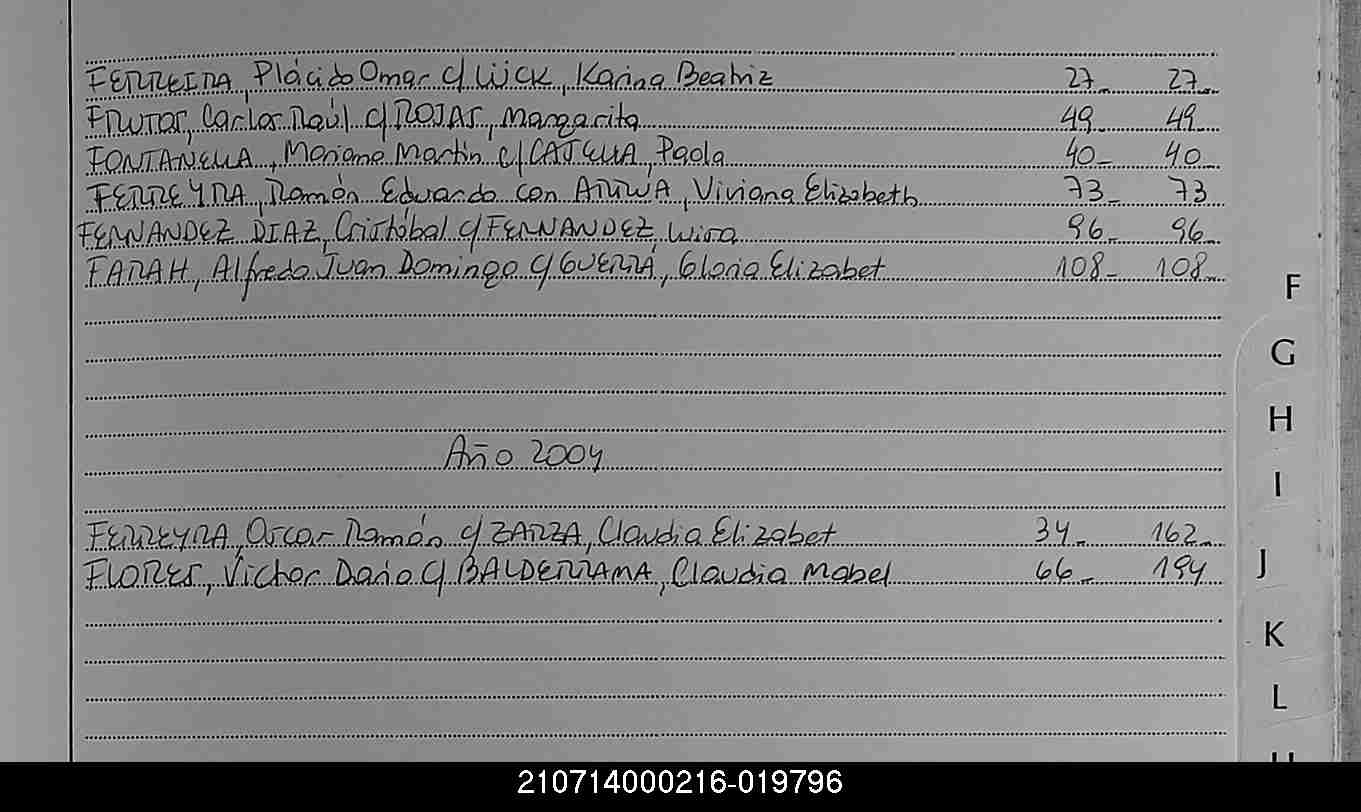 FERREIRA, Plácido Omar c/ LÜCK, Karina Beatriz 27_ 27_
FRUTOS, Carlos Raúl c/ ROJAS, Margarita 49 49
FONTANELLA, Mariano Martín c/ CASELLA, Paola 40_ 40_
FERREYRA, Ramón Eduardo con ARRUA, Viviana Elizabeth 73_ 73
FERNANDEZ DIAZ, Cristhóbal c/ FERNANDEZ, 96_ 96_
FARAH, Alfredo Juan Domingo c/ GUERRA, Gloria Elizabet 108_ 108_
F
G
H
Año 2004
I
FERREYRA, Oscar Ramón c/ ZARZA, Claudia Elizabet 34_ 162_
J
FLORES, Víctor Darío c/ BALDERRAMA, Claudia Mabel 66_ 194
K
L
210714000216-019796